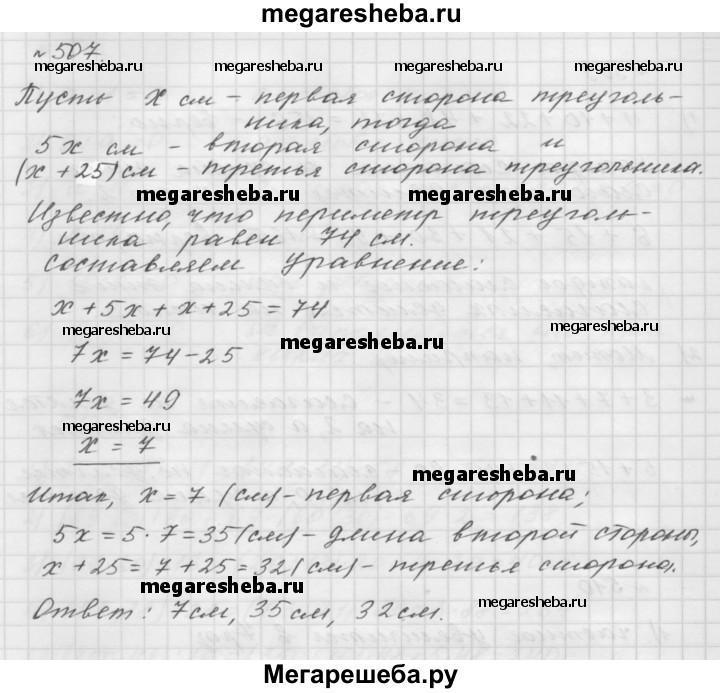 megaresheba.ru
№ 507
megaresheba.ru megaresheba.ru megaresheba.ru
Пусть х см – первая сторона треуголь-
ника, тогда
5х см – вторая сторона и
(х + 25) см – третья сторона треугольника.
megaresheba.ru megaresheba.ru
Известно, что периметр треуголь-
ника равен 74 см.
Составляем уравнение:
х + 5х + х + 25 = 74
megaresheba.ru megaresheba.ru megaresheba.ru
7х = 74 – 25
7х = 49
megaresheba.ru
х = 7
megaresheba.ru
Итак, х = 7 (см) – первая сторона;
5х = 5 · 7 = 35 (см) – длина второй стороны,
х + 25 = 7 + 25 = 32 (см) – третья сторона.
megaresheba.ru
Ответ: 7 см, 35 см, 32 см.
megaresheba.ru
Мегарешеба.ру